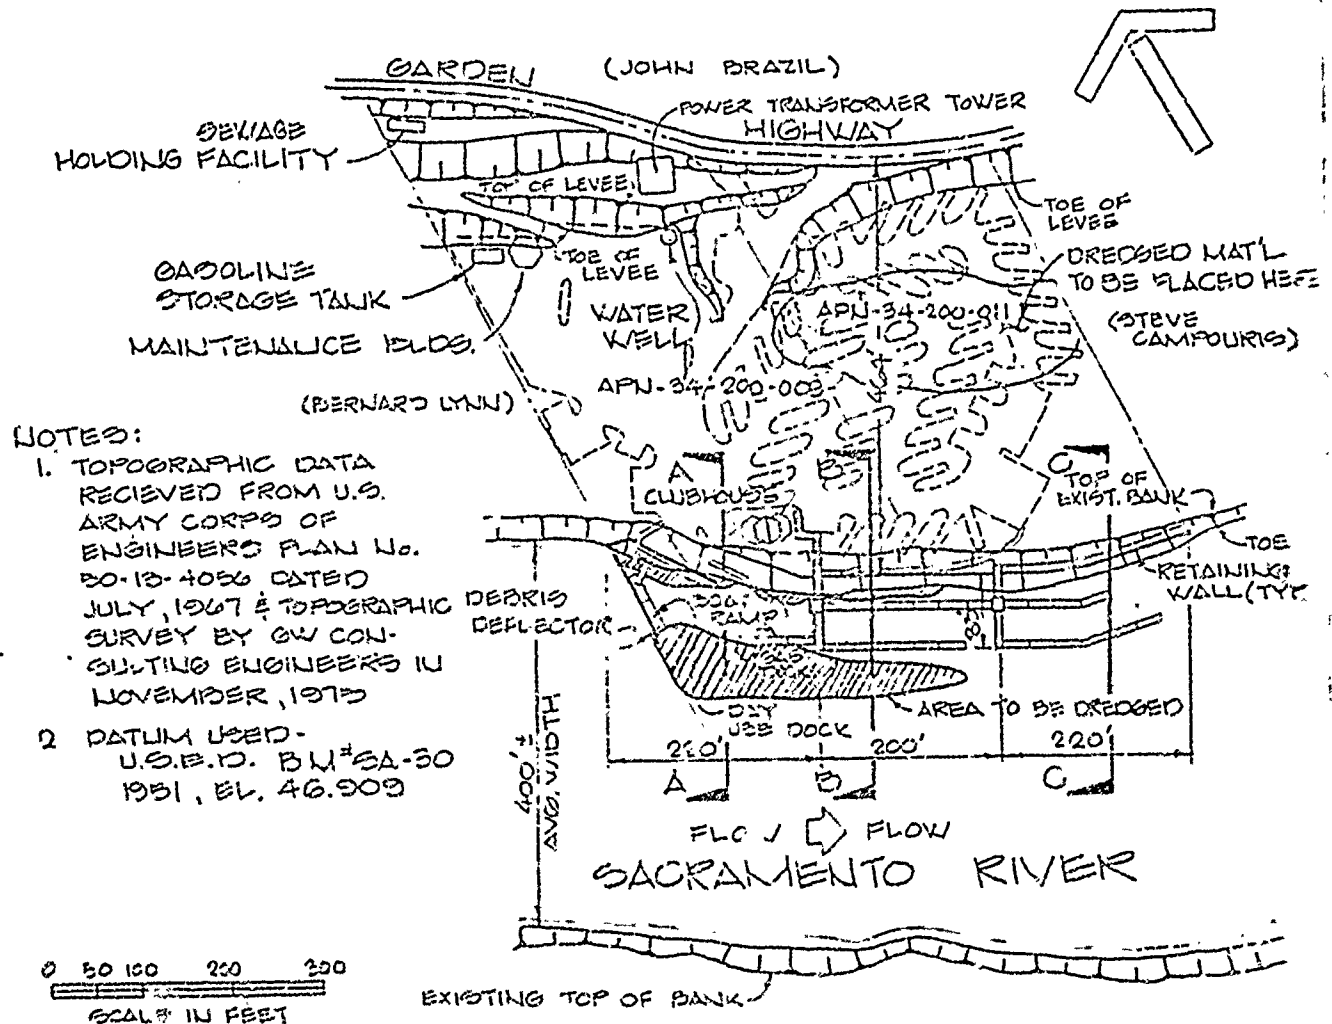 GARDEN
(JOHN BRAZIL)
POWER TRANSFORMER TOWER
HIGHWAY
SEWAGE
HOLDING FACILITY
TOP OF LEVEE
TOE OF
LEVEE
GASOLINE
STORAGE TANK
MAINTENANCE BLDS.
TOE OF
LEVEE
WATER
WELL
DREDGED MAT'L
TO BE PLACED HERE
APN-34-200-011
(STEVE
CAMPOURIS)
APN-34-200-003
(BERNARD LYNN)
NOTES:
1. TOPOGRAPHIC DATA
RECIEVED FROM U.S.
ARMY CORPS OF
ENGINEERS PLAN No.
50-13-4056 DATED
JULY, 1967 & TOPOGRAPHIC
SURVEY BY GW CON-
SULTING ENGINEERS IN
NOVEMBER, 1975
2 DATUM USED-
U.S.E.D. BM#SA-30
1951, EL. 46.909
A
B
C
CLUBHOUSE
TOP OF
EXIST. BANK
TOE
RETAINING
WALL (TYP.
DEBRIS
DEFLECTOR
BOAT
RAMP
DAY
USE DOCK
AREA TO BE DREDGED
220'
200'
220'
A
B
C
400' ±
AVG. WIDTH
FLOW
FLOW
SACRAMENTO RIVER
0 50 100 200 300
SCALE IN FEET
EXISTING TOP OF BANK